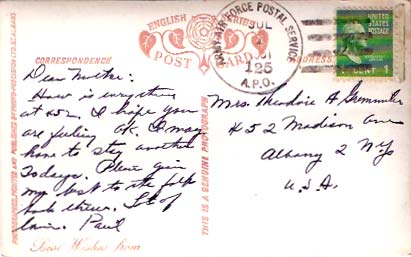 ENGLISH SERIES
POST CARD
CORRESPONDENCE
ADDRESS
ARMY-AIR FORCE POSTAL SERVICE
JUL
125
A.P.O.
UNITED STATES
1 CENT 1
Dear Mother:
How is everything
at 452. I hope you
are feeling OK. I may
have to stay another
30 days. Please give
my best to the folk
back there. Lots of
love. Paul
Best Wishes from
THIS IS A GENUINE PHOTOGRAPH
Mrs. Theodore A
452 Madison Ave
Albany 2 N.Y.
U.S.A.